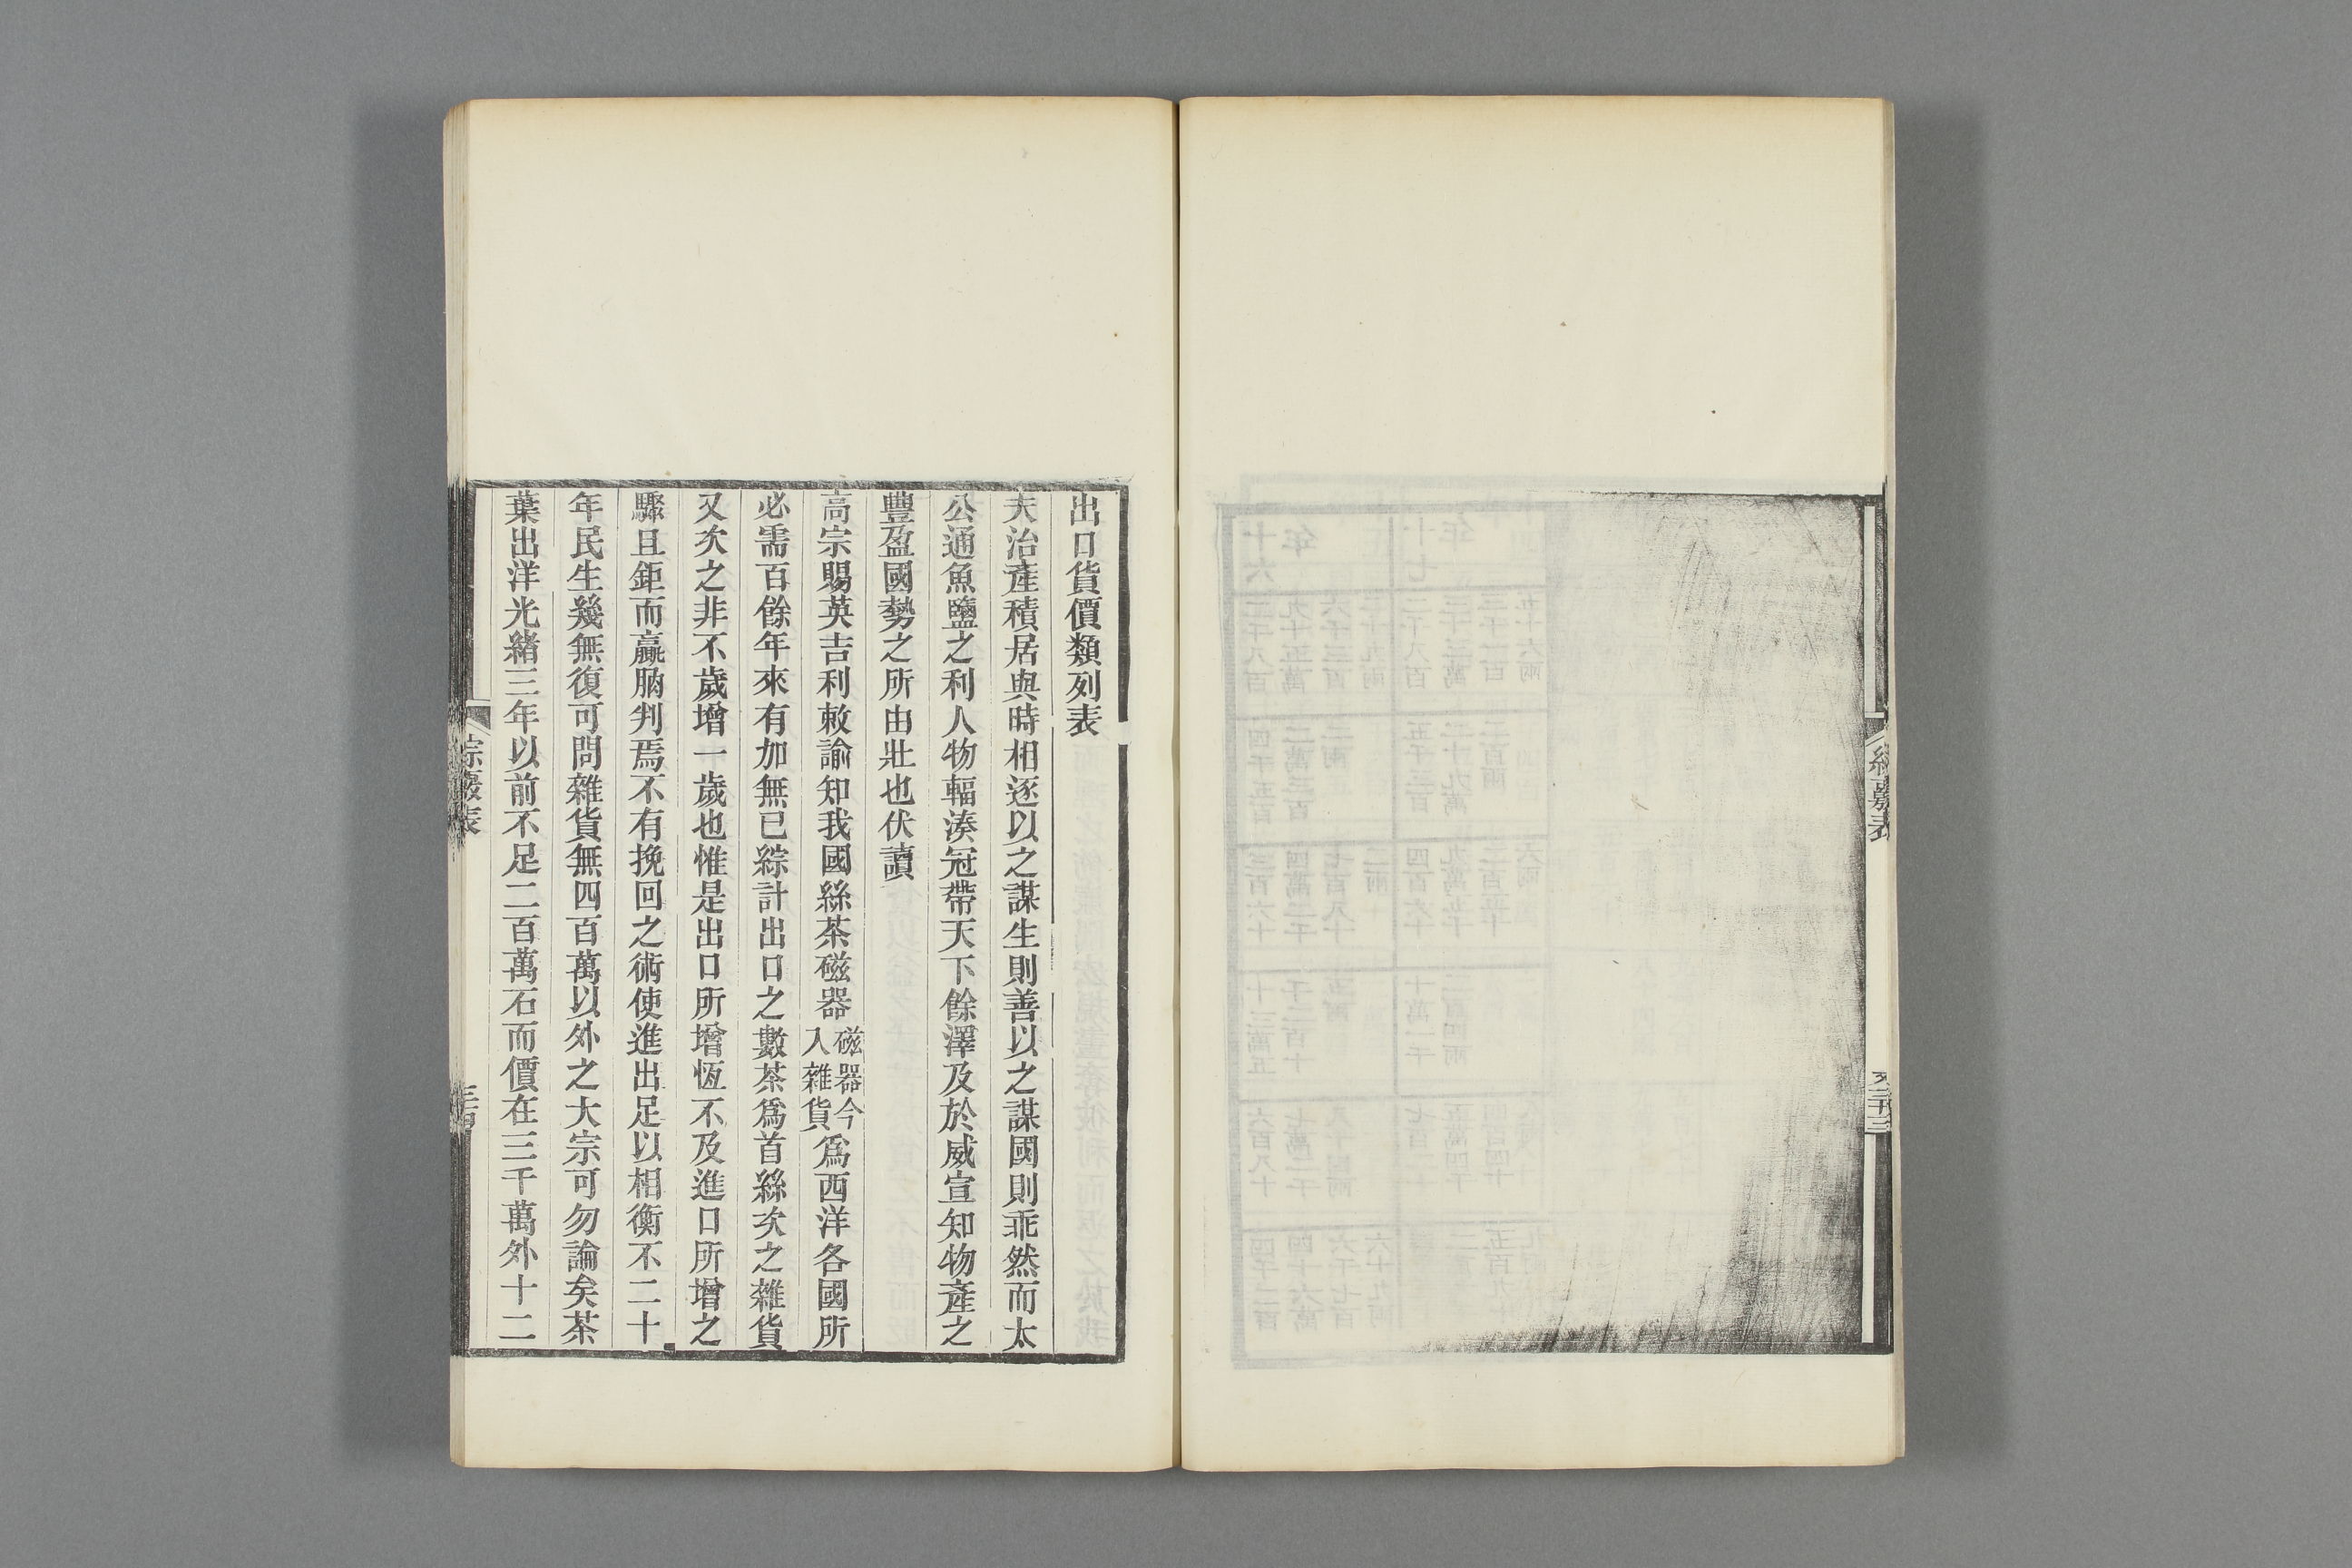 出口貨價類列表
夫治產積居與時相逐以之謀生則善以之謀國則乖然而太
公通魚鹽之利人物輻湊冠帶天下餘澤及於威宣知物產之
豐盈國勢之所由壯也伏讀
高宗賜英吉利敕諭知我國絲茶磁器磁器今入雜貨爲西洋各國所
必需百餘年來有加無已綜計出口之數茶爲首絲次之雜貨
又次之非不歲增一歲也惟是出口所增恆不及進口所增之
驟且鉅而贏朒判焉不有挽回之術使進出足以相衡不二十
年民生幾無復可問雜貨無四百萬以外之大宗可勿論矣茶
葉出洋光緒三年以前不足二百萬石而價在三千萬外十二
綜覈表